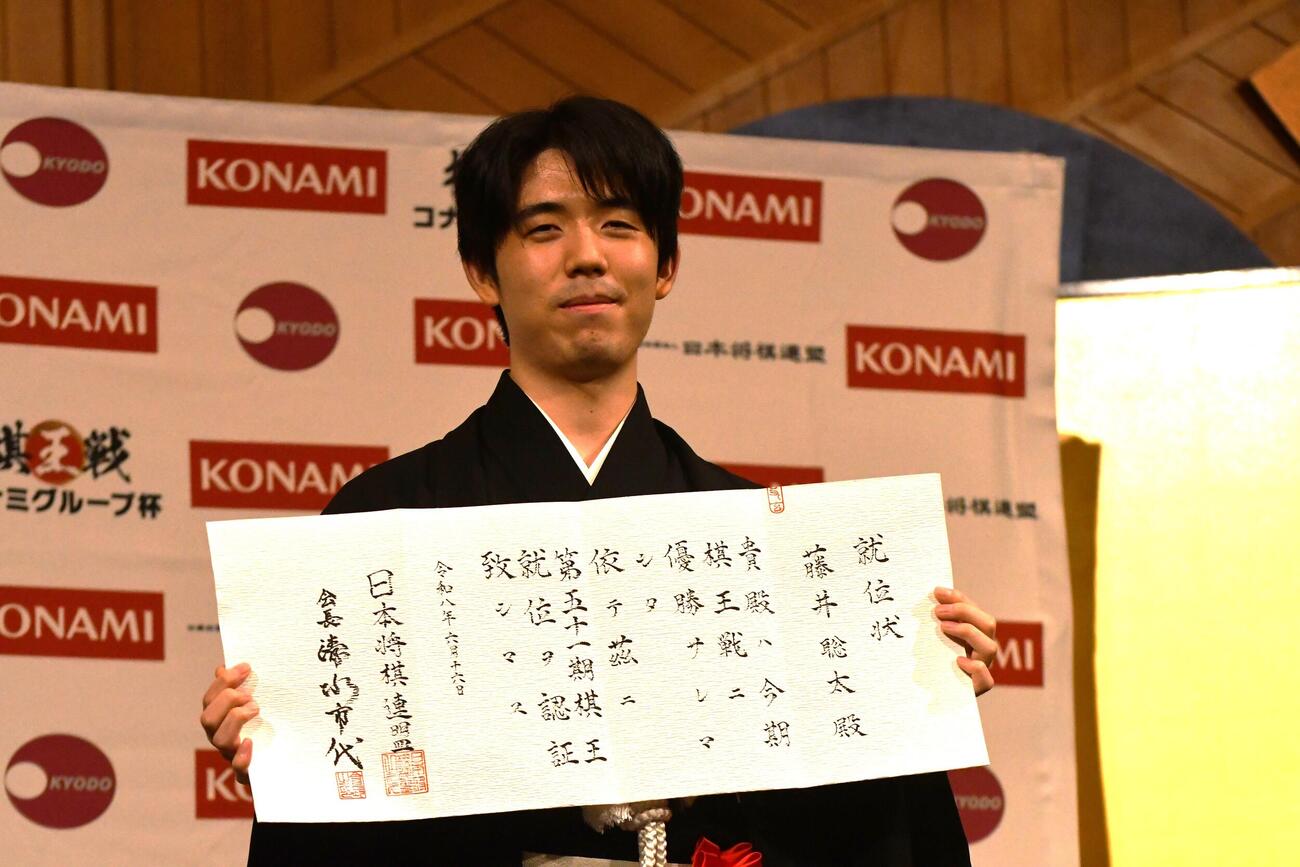 KYODO
KONAMI
コナ
KONAMI
KYODO
KONAMI
KYODO
KON
日本将棋連盟
KONAMI
棋王戦
ナミグループ杯
KONAMI
将棋連盟
KONAMI
KYODO
KYODO
就位状
藤井聡太殿
貴殿ハ今期
棋王戦ニ
優勝サレマ
シタ
依テ茲ニ
第五十一期棋王
就位ヲ認証
致シマス
令和八年六月十六日
日本将棋連盟
会長 清水市代